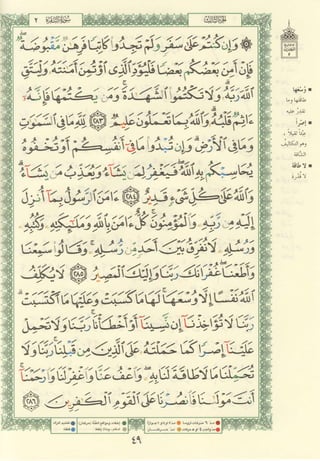 الجزء الثالث
سورة البقرة ٢
وَإِن كُنتُمْ عَلَىٰ سَفَرٍ وَلَمْ تَجِدُوا۟ كَاتِبًا فَرِهَـٰنٌ مَّقْبُوضَةٌ ۖ
فَإِنْ أَمِنَ بَعْضُكُم بَعْضًا فَلْيُؤَدِّ ٱلَّذِى ٱؤْتُمِنَ أَمَـٰنَتَهُۥ وَلْيَتَّقِ
ٱللَّهَ رَبَّهُۥ ۗ وَلَا تَكْتُمُوا۟ ٱلشَّهَـٰدَةَ ۚ وَمَن يَكْتُمْهَا فَإِنَّهُۥٓ
ءَاثِمٌ قَلْبُهُۥ ۗ وَٱللَّهُ بِمَا تَعْمَلُونَ عَلِيمٌ ٢٨٣ لِّلَّهِ مَا فِى ٱلسَّمَـٰوَٰتِ
وَمَا فِى ٱلْأَرْضِ ۗ وَإِن تُبْدُوا۟ مَا فِىٓ أَنفُسِكُمْ أَوْ تُخْفُوهُ
يُحَاسِبْكُم بِهِ ٱللَّهُ ۖ فَيَغْفِرُ لِمَن يَشَآءُ وَيُعَذِّبُ مَن يَشَآءُ ۗ
وَٱللَّهُ عَلَىٰ كُلِّ شَىْءٍ قَدِيرٌ ٢٨٤ ءَامَنَ ٱلرَّسُولُ بِمَآ أُنزِلَ
إِلَيْهِ مِن رَّبِّهِۦ وَٱلْمُؤْمِنُونَ ۚ كُلٌّ ءَامَنَ بِٱللَّهِ وَمَلَـٰٓئِكَتِهِۦ وَكُتُبِهِۦ
وَرُسُلِهِۦ لَا نُفَرِّقُ بَيْنَ أَحَدٍ مِّن رُّسُلِهِۦ ۚ وَقَالُوا۟ سَمِعْنَا
وَأَطَعْنَا ۖ غُفْرَانَكَ رَبَّنَا وَإِلَيْكَ ٱلْمَصِيرُ ٢٨٥ لَا يُكَلِّفُ
ٱللَّهُ نَفْسًا إِلَّا وُسْعَهَا ۚ لَهَا مَا كَسَبَتْ وَعَلَيْهَا مَا ٱكْتَسَبَتْ ۗ
رَبَّنَا لَا تُؤَاخِذْنَآ إِن نَّسِينَآ أَوْ أَخْطَأْنَا ۚ رَبَّنَا وَلَا تَحْمِلْ
عَلَيْنَآ إِصْرًا كَمَا حَمَلْتَهُۥ عَلَى ٱلَّذِينَ مِن قَبْلِنَا ۚ رَبَّنَا وَلَا
تُحَمِّلْنَا مَا لَا طَاقَةَ لَنَا بِهِۦ ۖ وَٱعْفُ عَنَّا وَٱغْفِرْ لَنَا وَٱرْحَمْنَآ ۚ
أَنتَ مَوْلَىٰنَا فَٱنصُرْنَا عَلَى ٱلْقَوْمِ ٱلْكَـٰفِرِينَ ٢٨٦
٤٩
وُسْعَهَا
طاقتها وما
تقدر عليه
إِصْرًا
عبئًا ثقيلًا
وهو التكاليف
الشاقة
لا طاقة
لا قدرة